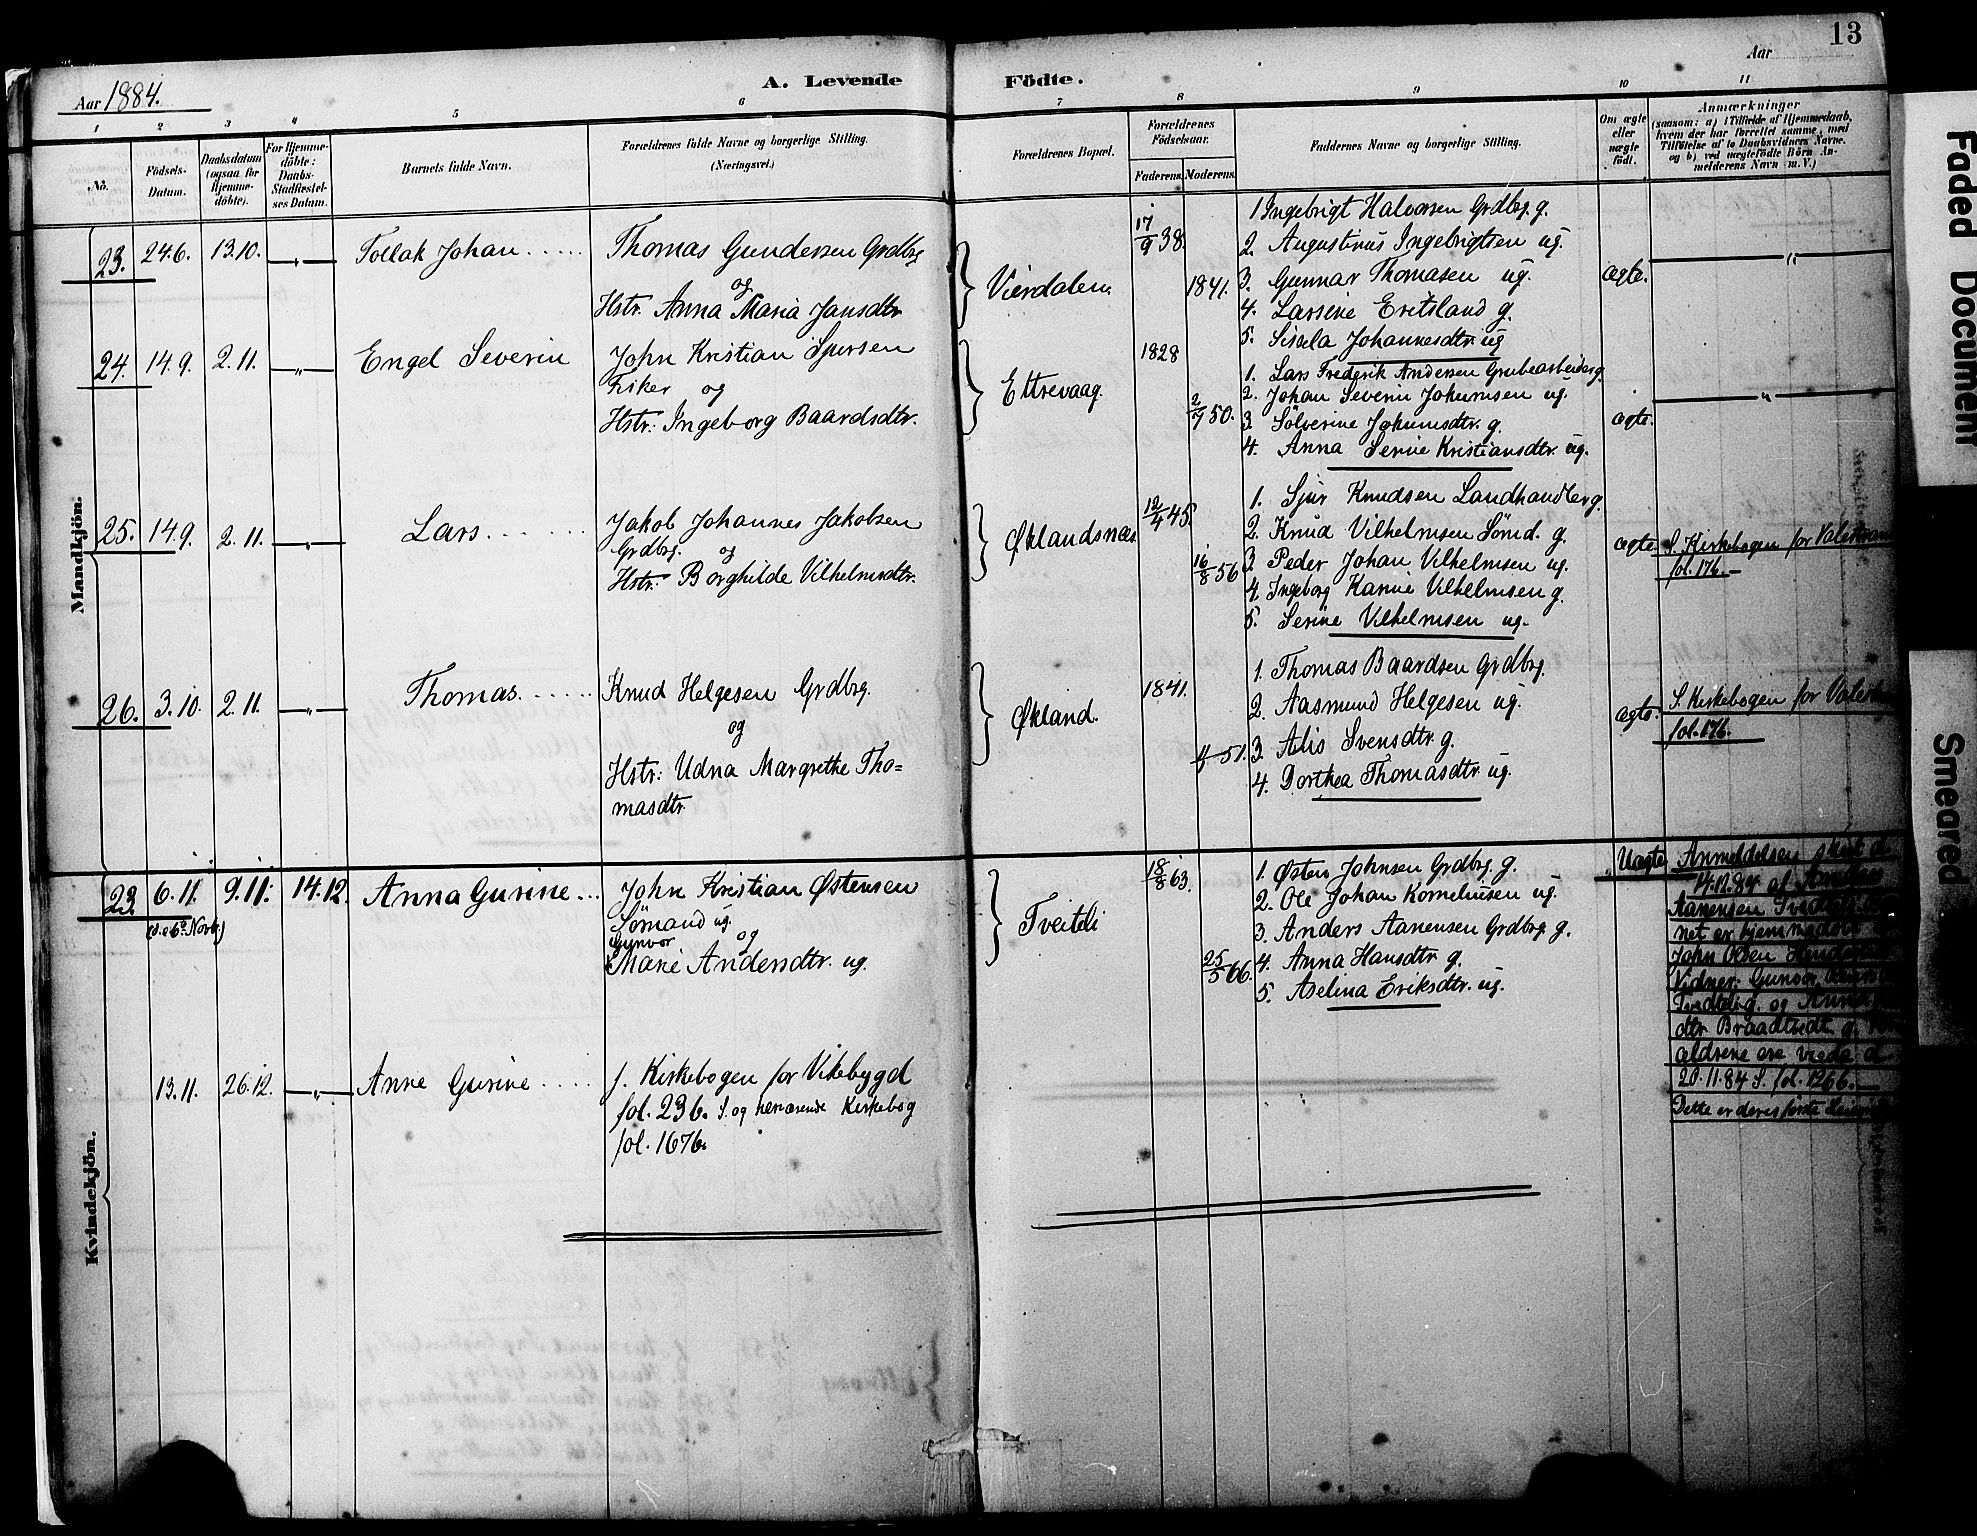 13
Aar 1884.
A. Levende Födte.
Aar
1 2 3 4 5 6 7 8 9 10 11
No.
Födsels-Datum.
Daabsdatum (ogsaa for Hjemme-döbte).
For Hjemme-döbte: Daabs-Stadfæstel-ses Datum.
Barnets fulde Navn.
Forældrenes fulde Navne og borgerlige Stilling.
(Næringsvei.)
Forældrenes Bopæl.
Forældrenes Födselsaar.
Faderens. Moderens.
Faddernes Navne og borgerlige Stilling.
Om ægte eller uægte födt.
Anmærkninger
(saasom: a) i Tilfælde af Hjemmedaab, hvem der har forrettet samme, med Tilföielse af to Daabsvidners Navne, og b) ved uægtefödte Börn Anmelderens Navn m. V.)
Mandkjön.
23. 24.6. 13.10. —„— Tollak Johan
Thomas Gundersen Grdbrg
og
Hstr. Anna Maria Jansdtr
17/9 38.
1841.
1 Ingebrigt Halvorsen Grdbrg. g.
2. Augustinus Ingebrigtsen ug.
3. Gunnar Thomasen ug.
4. Larsine Eritsland g.
5. Sissela Johannesdtr. ug
ægte. —„—
24. 14.9. 2.11. —„— Engel Severin
John Kristian Sjursen
Fisker og
Hstr: Ingeborg Baardsdtr.
Ettrevaag.
1828
2/7 50.
1. Lars Frederik Andersen Grubearbeider g.
2. Johan Severin Johannesen ug.
3. Sölverine Johannesdtr. g.
4. Anna Serine Kristiansdtr. ug.
ægte. —„—
25. 14.9. 2.11. —„— Lars
Jakob Johannes Jakobsen
Grdbrg. og
Hstr: Borghilde Vilhelmsdtr.
Øklandsnæs
12/4 45.
16/8 56
1. Sjur Knudsen Landhandler g.
2. Knud Vilhelmsen Sömd. g.
3. Peder Johan Vilhelmsen ug.
4. Ingeborg Karine Vilhelmsen g.
5. Serine Vilhelmsen ug.
ægte.
S. Kirkebogen for
fol. 176.
26. 3.10. 2.11. —„— Thomas.
Knud Helgesen Grdbrg.
og
Hstr: Udna Margrethe Tho=
masdtr.
Økland.
1841.
51.
1. Thomas Baardsen Grdbrg.
2. Aasmund Helgesen ug.
3. Alis Svensdtr. g.
4. Dorthea Thomasdtr. ug.
ægte.
S. Kirkebogen for
fol. 176.
Kvindekjön.
23. 6.11. 9.11. 14.12. Anna Gurine
(d.e 6te Novbr.)
John Kristian Østensen
Sömand ug.
Gunvor og
Marie Andersdtr. ug.
Tveitli
18/8 63.
25/5 66.
1. Østen Johnsen Grdbrg. g.
2. Ole Johan Korneliusen ug.
3. Anders Aanensen Grdbrg. g.
4. Anna Hansdtr. g.
5. Aselina Eriksdtr. ug.
Uægte
Anmeldelsen
14.12.84 af
Aanensen
net er hjemmedöbt
John Olsen
Vidner: Gunvor
og Anna
dtr Braadtvedt g.
ældrene ere viede d.
20.11.84 S. fol. 126b.
Dette er deres förste
13.11. 26.12. —„— Anne Gurine
s. Kirkebogen for Vikebygd
fol. 23b. S. og nærværende Kirkebog
fol. 167b.
Faded Document
Smeared